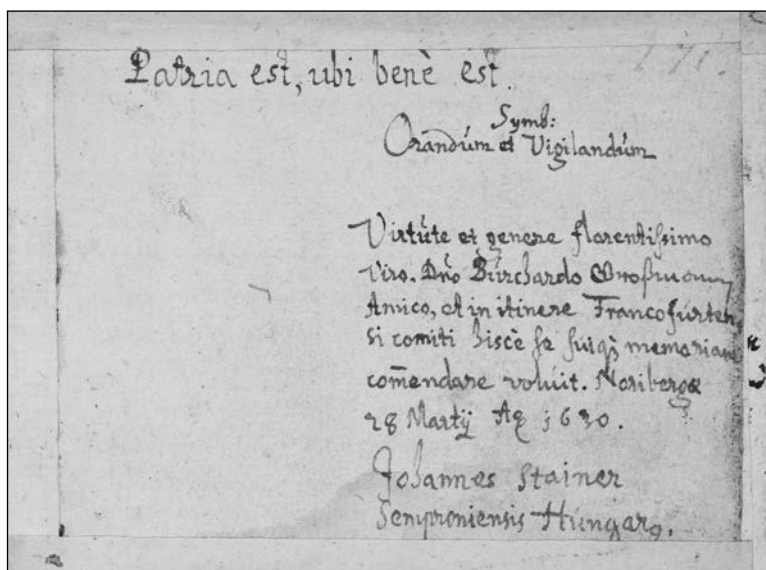 171.
Patria est, ubi benè est.
Symb:
Orandúm et Vigilandúm
Virtúte et genere florentissimo
viro. Dno Búrchardo
Amico, et in itinere Francofúrten
si comiti hisce se suiq; memoriam
comendare volúit. Noribergæ
28 Martij Aō 1630.
Johannes Stainer
Semproniensis Húngarq.